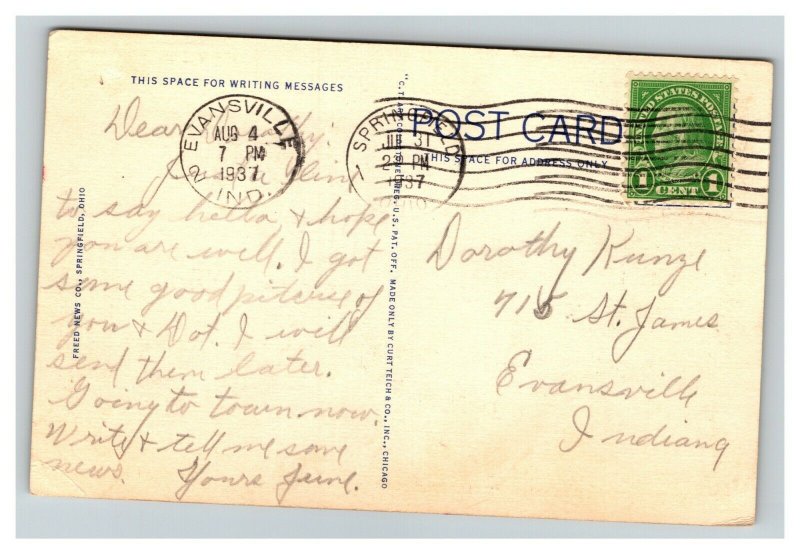 THIS SPACE FOR WRITING MESSAGES
POST CARD
THIS SPACE FOR ADDRESS ONLY
EVANSVILLE
AUG 4
7 PM
1937
IND.
SPRINGFIELD
31
PM
1937
OHIO
UNITED STATES POSTAGE
1 CENT 1
Dear Dorothy,
to say hello & hope
you are well. I got
some good pitcures of
you & Dot. I will
send them later.
Going to town now.
Write & tell me some
news. Yours June.
Dorothy Kunze
715 St. James
Evansville
Indiana
FREED NEWS CO., SPRINGFIELD, OHIO
REG. U.S. PAT. OFF. MADE ONLY BY CURT TEICH & CO., INC., CHICAGO